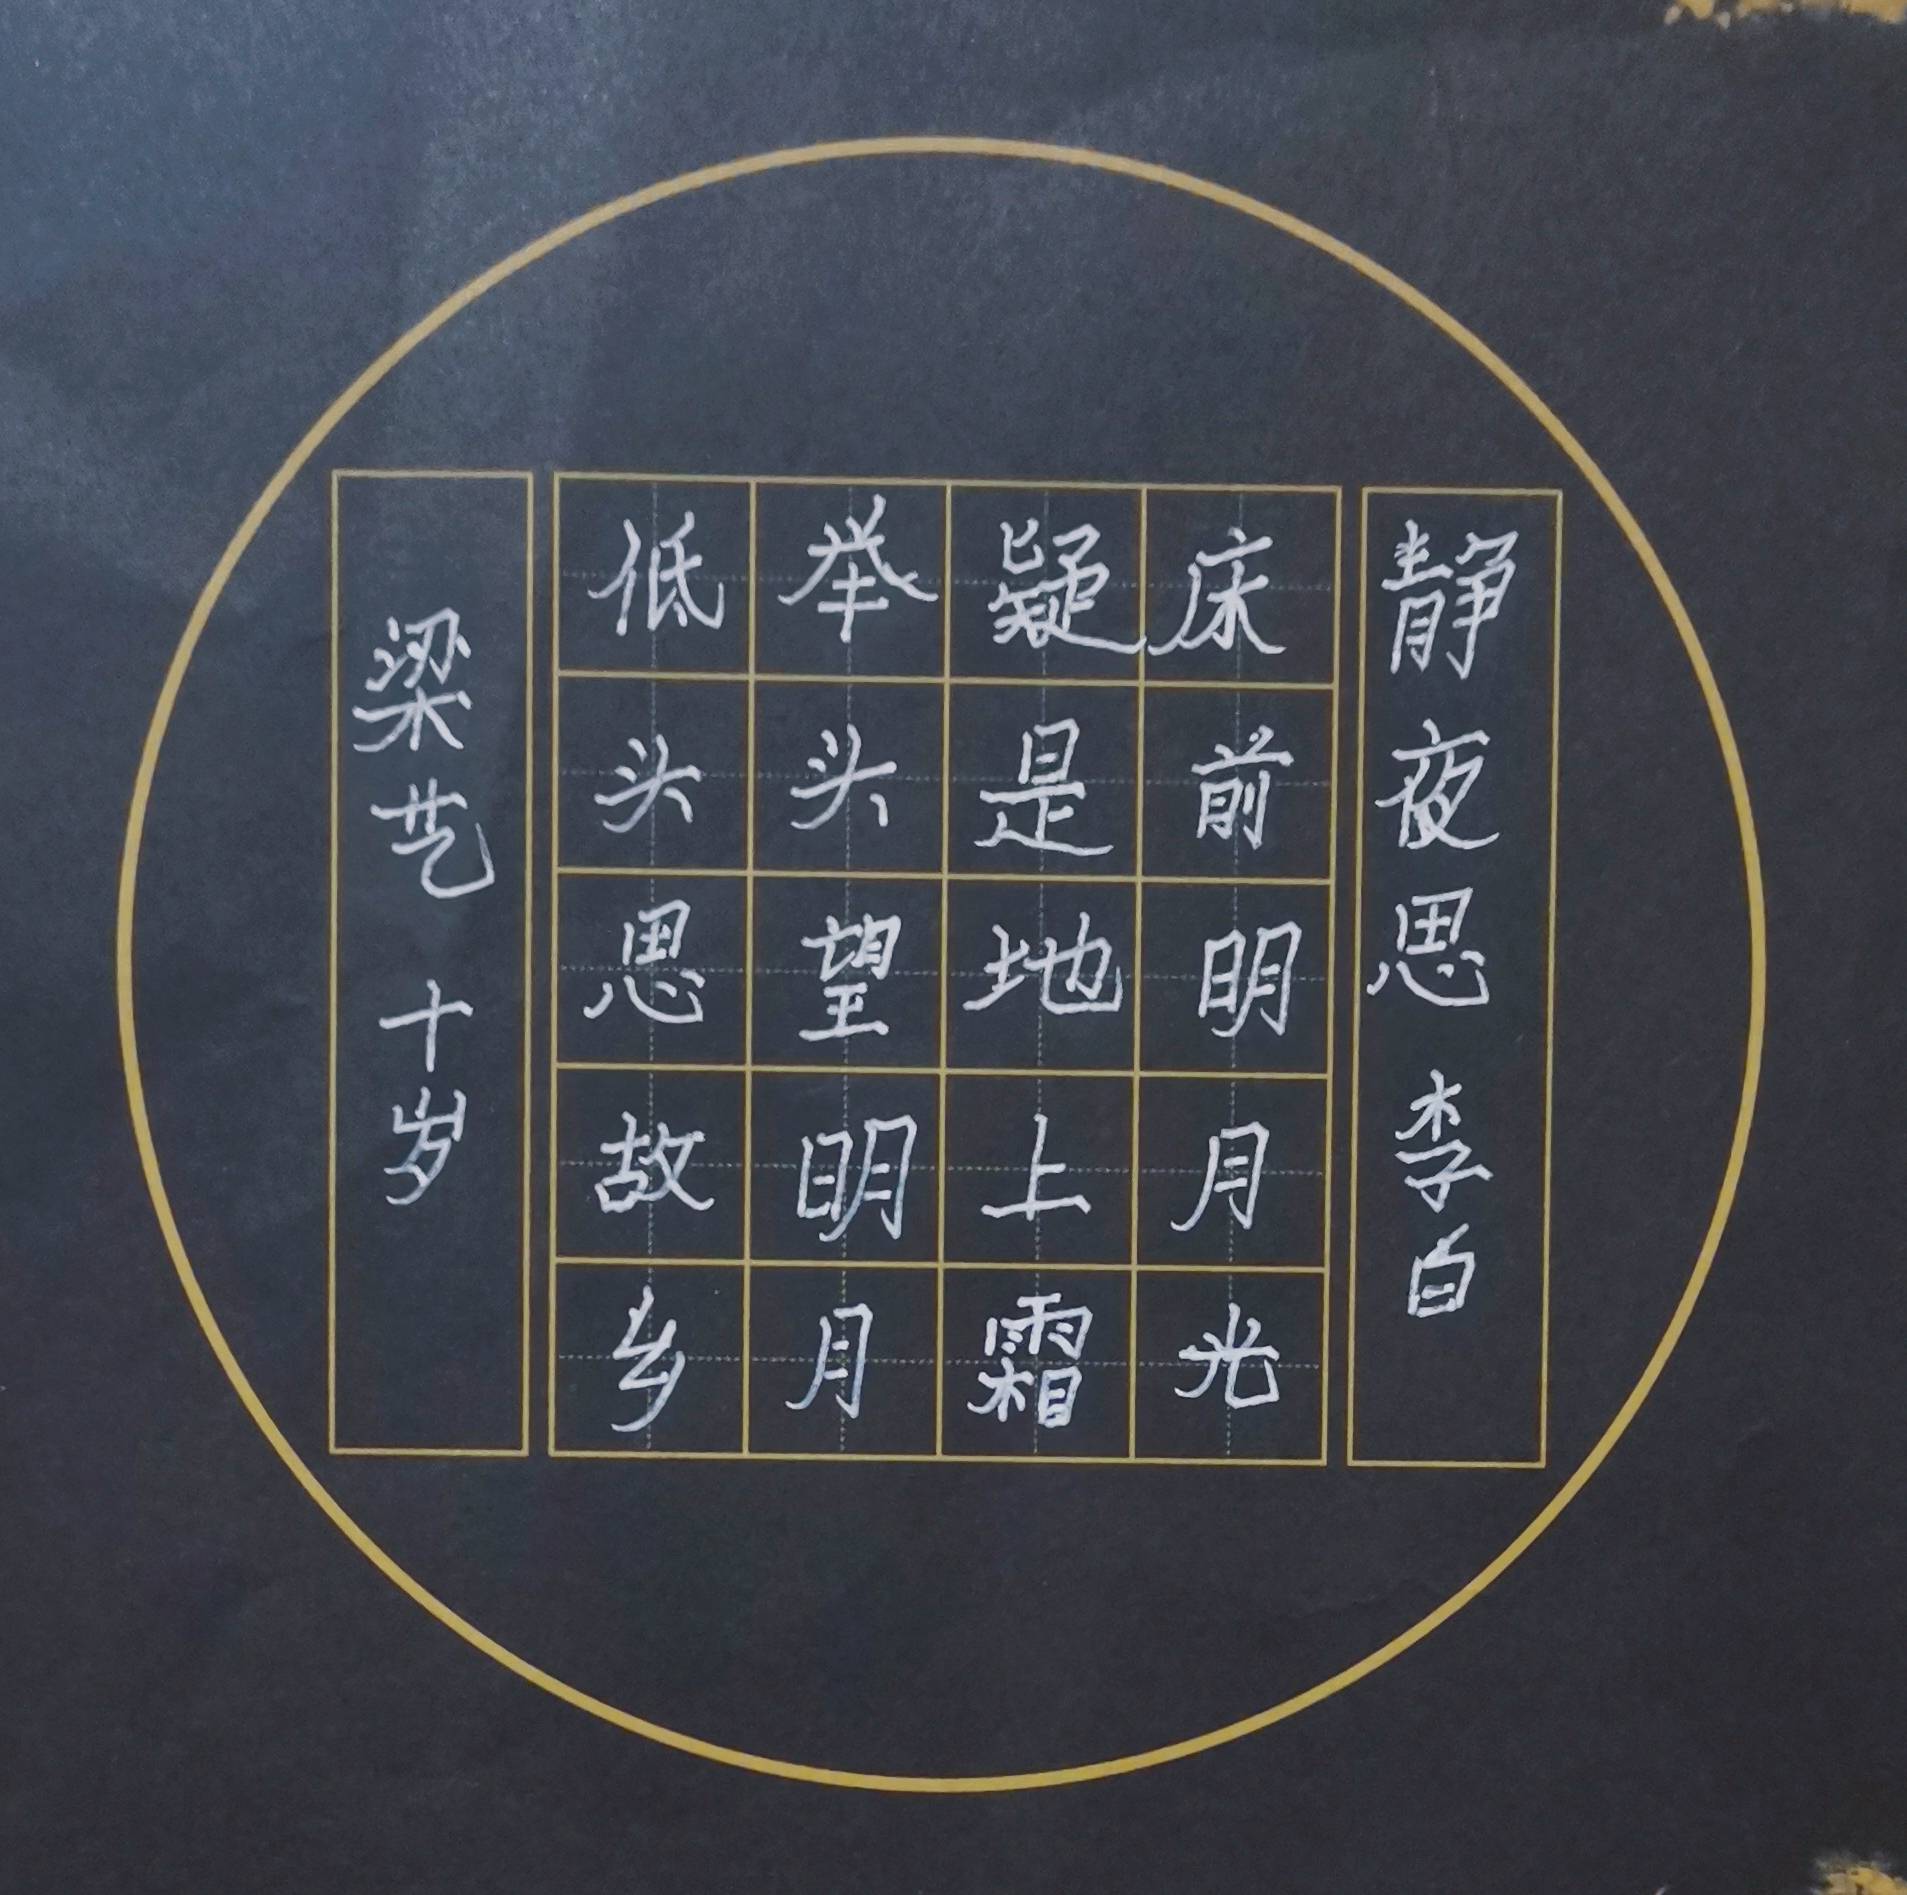 静夜思 李白
床前明月光
疑是地上霜
举头望明月
低头思故乡
梁艺 十岁